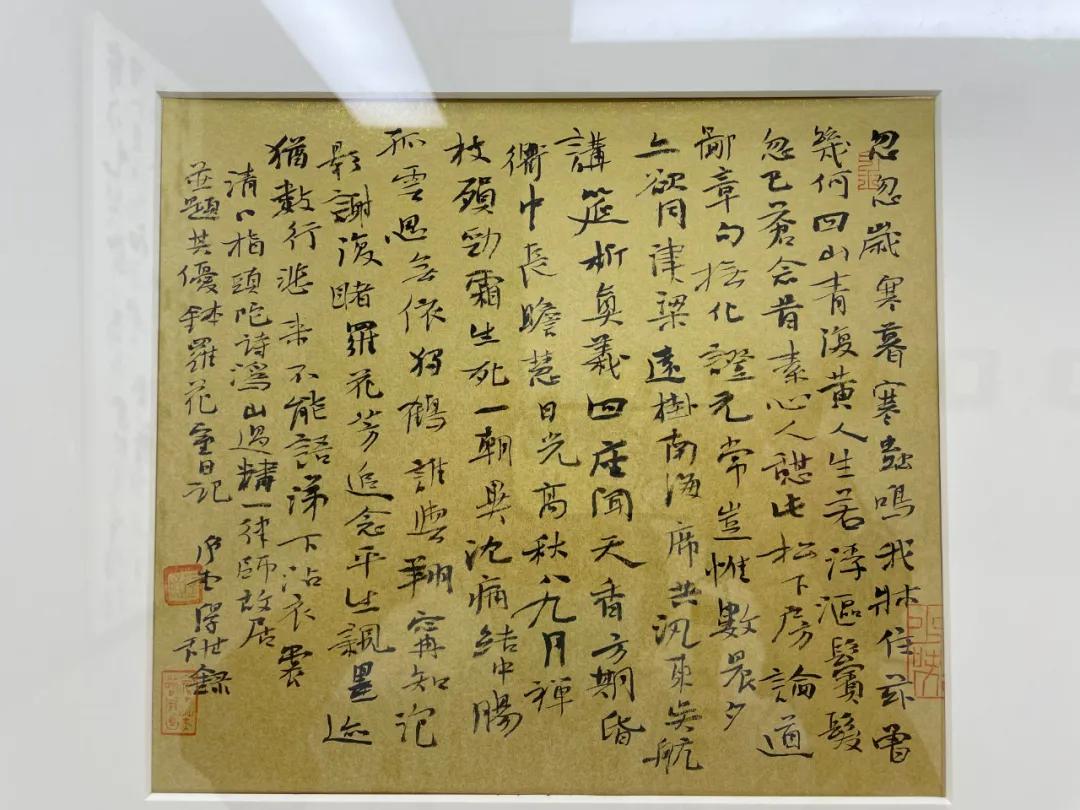 忽忽歲寒暮寒蟲鳴我牀住茲曾
幾何回山青復黃人生若浮漚鬢髮
忽已蒼念昔素心人憩此松下房論道
鄙章句撫化證无常豈惟數晨夕
上欲同津梁遠掛南海席共汎東吳航
講筵析奧義四座聞天香方期偕
衢中長瞻慧日光高秋八九月禪
枝殞勁霜生死一朝異沈痛結中腸
孤雲過無依獨鶴誰與翔甯知泡
影謝復睹羅花芳追念平生親墨迹
猶數行悲來不能語涕下沾衣裳
清八指頭陀詩溈山過精一律師故居
並題其優鉢羅花室日記